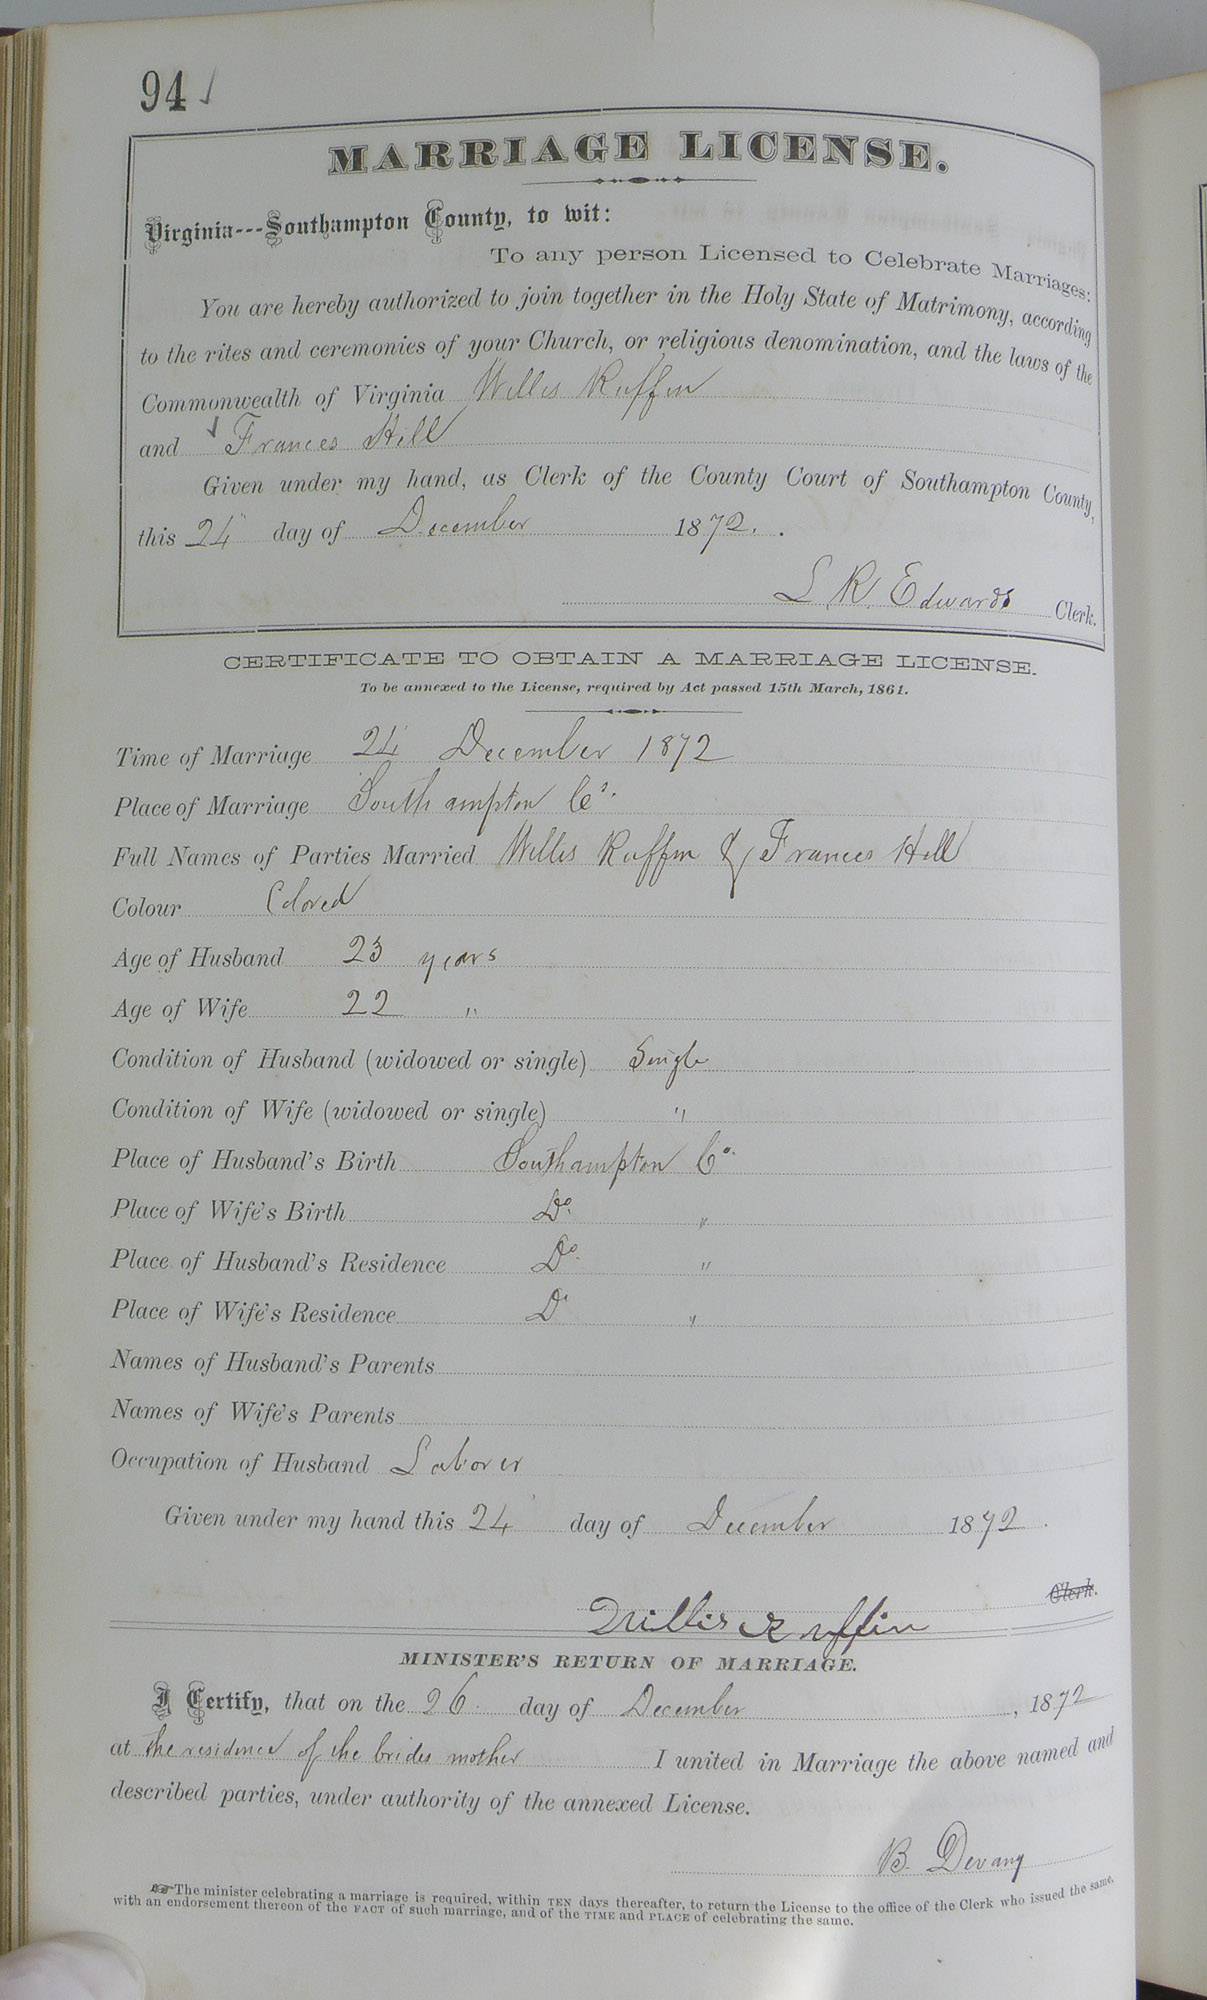 94 ✓
MARRIAGE LICENSE.
Virginia---Southampton County, to wit:
To any person Licensed to Celebrate Marriages:
You are hereby authorized to join together in the Holy State of Matrimony, according
to the rites and ceremonies of your Church, or religious denomination, and the laws of the
Commonwealth of Virginia Willis Ruffin
and ✓ Frances Hill
Given under my hand, as Clerk of the County Court of Southampton County,
this 24" day of December 1872.
L R Edwards Clerk.
CERTIFICATE TO OBTAIN A MARRIAGE LICENSE.
To be annexed to the License, required by Act passed 15th March, 1861.
Time of Marriage 24 December 1872
Place of Marriage Southampton Co.
Full Names of Parties Married Willis Ruffin & Frances Hill
Colour Colored
Age of Husband 23 years
Age of Wife 22 "
Condition of Husband (widowed or single) Single
Condition of Wife (widowed or single) "
Place of Husband's Birth Southampton Co.
Place of Wife's Birth Do. "
Place of Husband's Residence Do. "
Place of Wife's Residence D "
Names of Husband's Parents
Names of Wife's Parents
Occupation of Husband Laborer
Given under my hand this 24 day of December 1872.
Clerk.
Willis Ruffin
MINISTER'S RETURN OF MARRIAGE.
I Certify, that on the 26 day of December, 1872
at the residence of the brides mother I united in Marriage the above named and
described parties, under authority of the annexed License.
B. Devany
☞ The minister celebrating a marriage is required, within TEN days thereafter, to return the License to the office of the Clerk who issued the same,
with an endorsement thereon of the FACT of such marriage, and of the TIME and PLACE of celebrating the same.